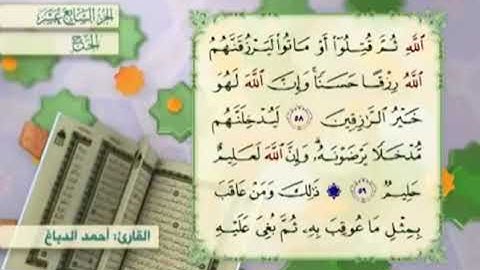 الجزء السابع عشر
الحج
اللَّهِ ثُمَّ قُتِلُوٓا۟ أَوْ مَاتُوا۟ لَيَرْزُقَنَّهُمُ
اللَّهُ رِزْقًا حَسَنًا ۚ وَإِنَّ اللَّهَ لَهُوَ
خَيْرُ الرَّازِقِينَ ٥٨ لَيُدْخِلَنَّهُم
مُّدْخَلًا يَرْضَوْنَهُ ۗ وَإِنَّ اللَّهَ لَعَلِيمٌ
حَلِيمٌ ٥٩ ذَٰلِكَ وَمَنْ عَاقَبَ
بِمِثْلِ مَا عُوقِبَ بِهِ ثُمَّ بُغِيَ عَلَيْهِ
القارئ: أحمد الدباغ